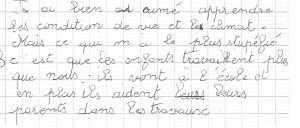 a bien aimé apprendre
les condition de vie et le climat.
Mais ce qui m a le plus stupéfié
c est que ces enfants travaillent plus
que nous : ils vont à l école et
en plus ils aident leurs leurs
parents dans les travause